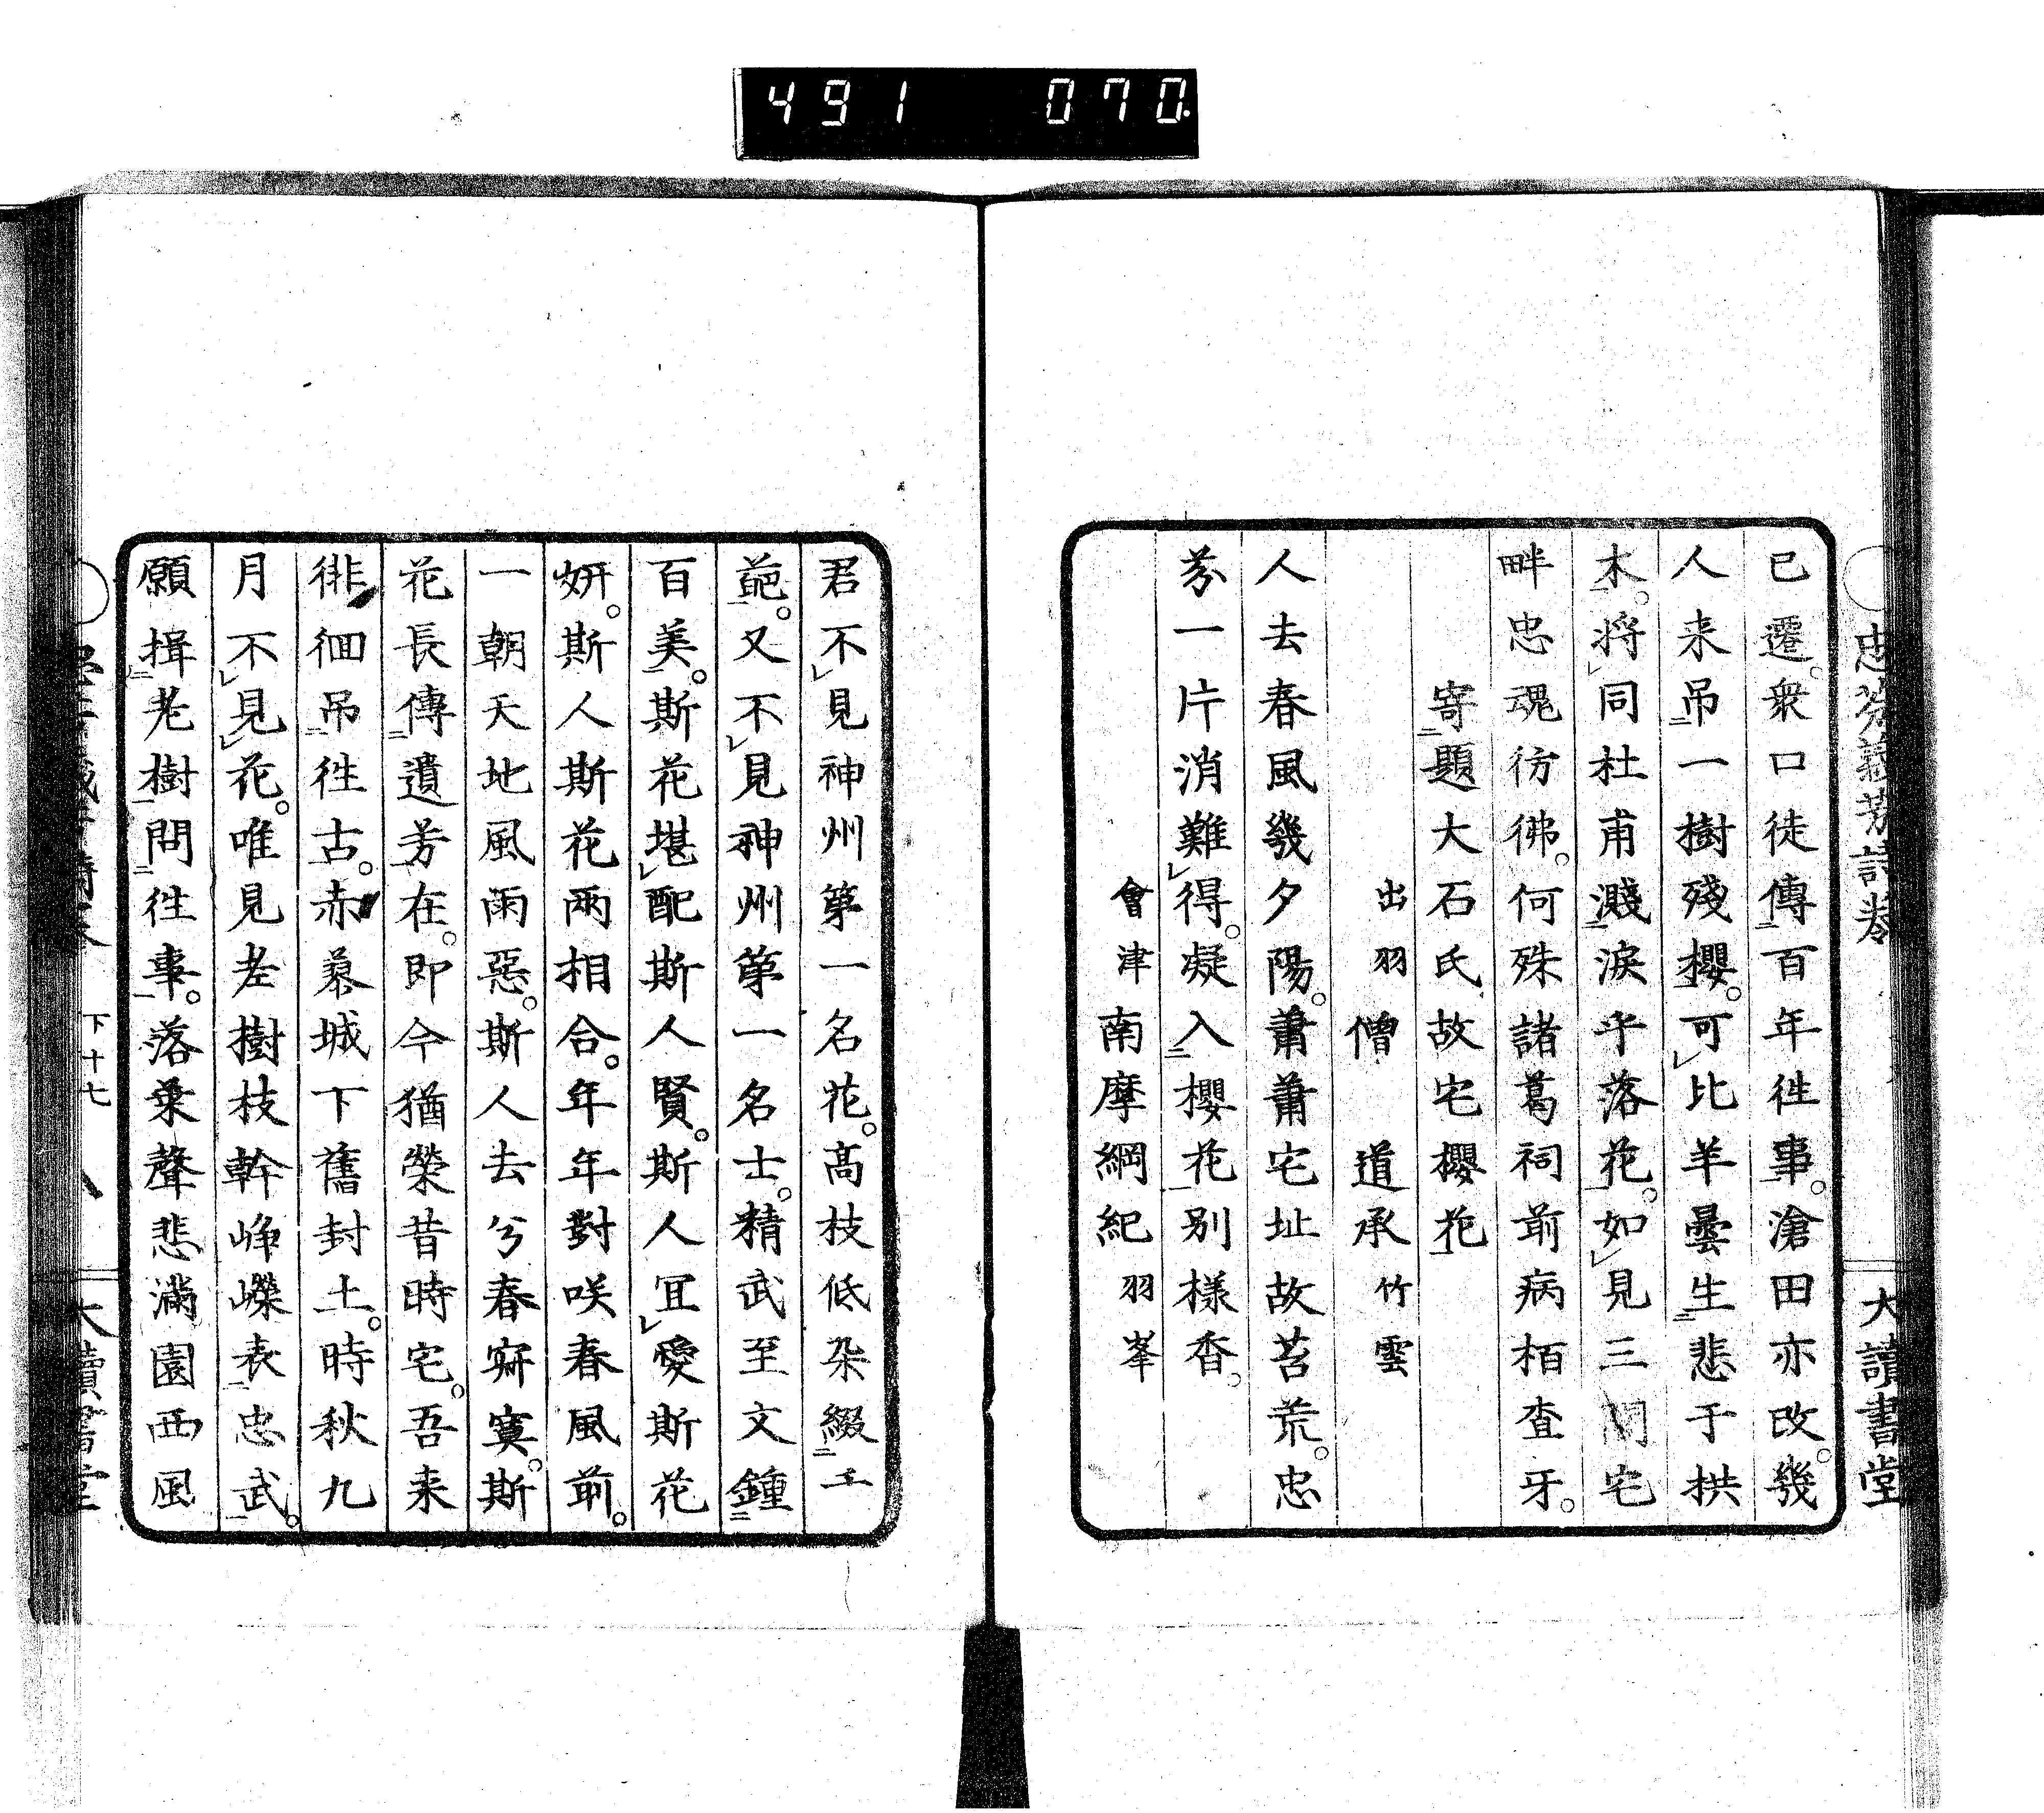 491 070
忠芬義芳詩巻
大讀書堂
已遷。衆口徒傳百年徃事。滄田亦改。幾
人来吊一樹殘櫻。可比羊曇生悲于拱
木。將同杜甫濺淚乎落花。如見三閭宅
畔忠魂彷彿。何殊諸葛祠前病栢査牙。
寄題大石氏故宅櫻花
出羽 僧 道承 竹雲
人去春風幾夕陽。蕭蕭宅址故苔荒。忠
芬一片消難得。凝入櫻花別樣香。
會津 南摩綱紀 羽峯
君不見神州第一名花。高枝低朶綴千
葩。又不見神州第一名士。精武至文鍾
百美。斯花堪配斯人賢。斯人冝愛斯花
妍。斯人斯花兩相合。年年對咲春風前。
一朝天地風雨惡。斯人去兮春寂寞。斯
花長傳遺芳在。即今猶榮昔時宅。吾来
徘徊吊徃古。赤𦬇城下舊封土。時秋九
月不見花。唯見老樹枝幹崢嶸表忠武。
願揖老樹問徃事。落葉聲悲滿園西風
下十七
大讀書堂